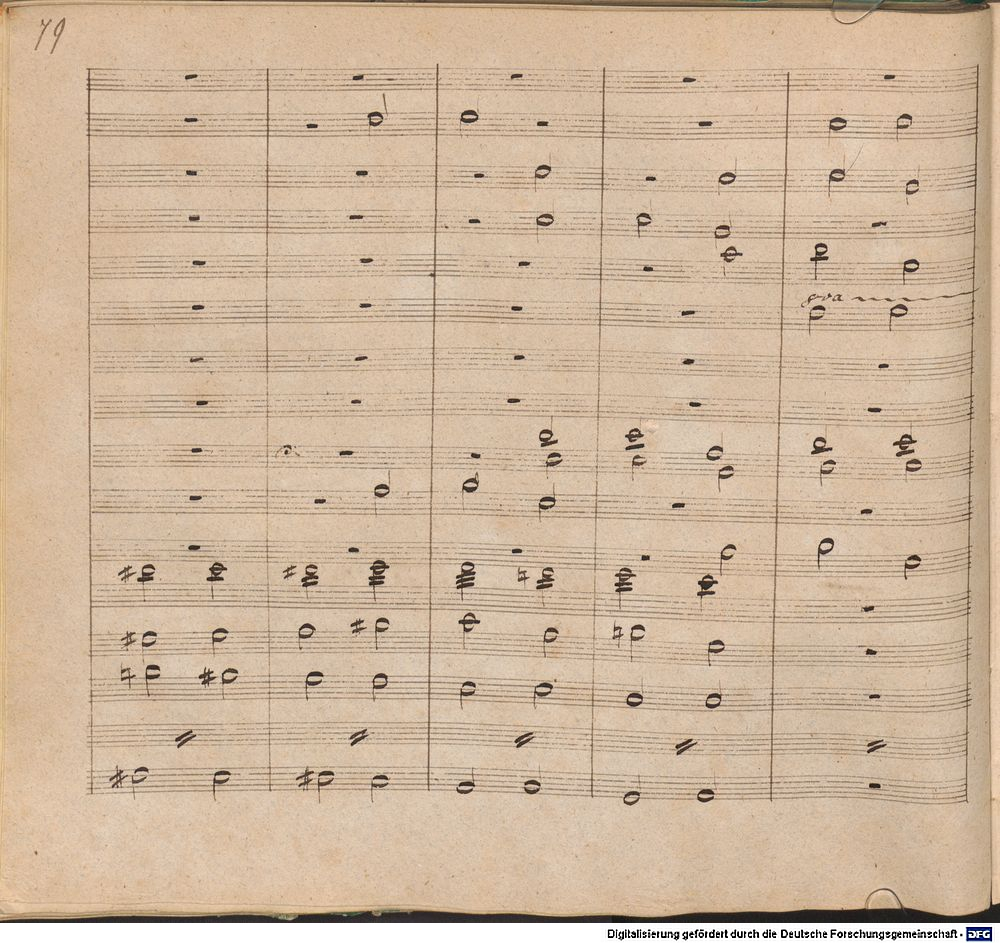 79
8va
Digitalisierung gefördert durch die Deutsche Forschungsgemeinschaft - DFG